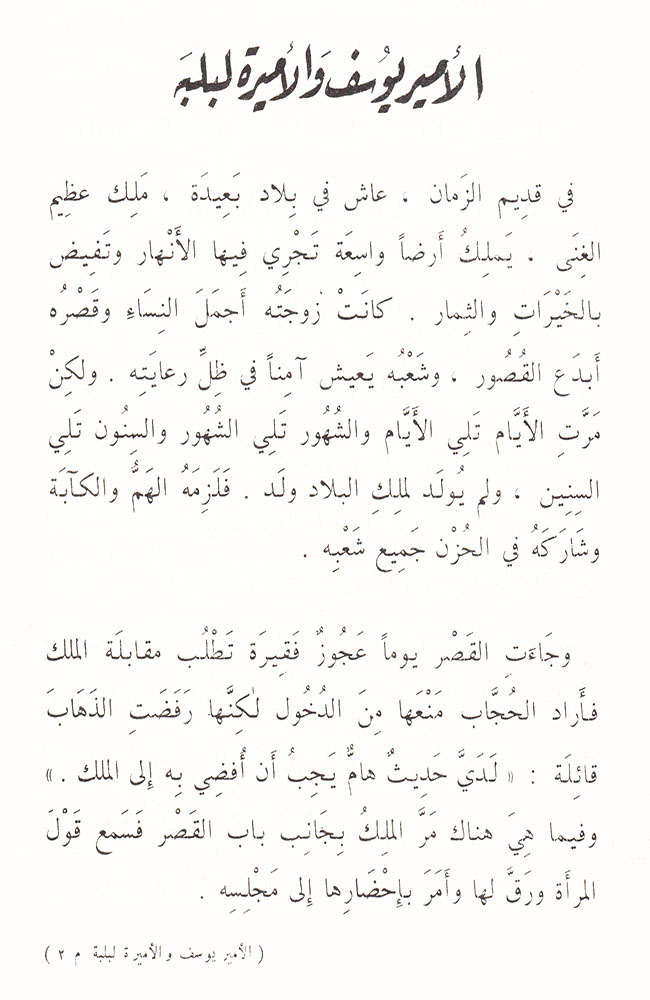 الأمير يوسف والأميرة لبلبة
في قديِم الزَمان ، عاش في بِلاد بَعِيدَة ، مَلِك عظِيم
الغِنَى . يَملِكُ أَرضاً واسِعَة تَجْرِي فِيها الأَنْهار وتَفِيض
بالخَيْرَاتِ والثِمار . كانَتْ زوجَتُه أَجمَلَ النِسَاءِ وقَصْرُه
أَبدَع القُصُور ، وشَعْبُه يَعيش آمِناً في ظِلِّ رعايَتِه . ولكِنْ
مَرَّتِ الأَيَّام تَلِي الأَيَّام والشُهُور تَلِي الشُهُور والسِنُون تَلِي
السِنِين ، ولم يُولَد لملِكِ البلاد ولَد . فَلَزِمَهُ الهَمُّ والكآبَة
وشَارَكَهُ في الحُزْن جَمِيع شَعْبِه .
وجَاءَتِ القَصْر يوماً عَجُوزٌ فَقِيرَة تَطْلُب مقابلَة الملك
فأَراد الحُجَّاب مَنْعَها مِنَ الدُخُول لٰكِنَّها رَفَضَتِ الذَهَابَ
قائِلَة : « لَدَيَّ حَدِيثٌ هامٌّ يَجِبُ أَن أُفضِي بِه إِلى الملك . »
وفيما هِيَ هناك مَرَّ الملِكُ بِجَانِب باب القَصْر فَسَمع قَوْلَ
المرأَة ورَقَّ لها وأَمَرَ بإِحْضَارِها إِلى مَجْلِسِه .
( الأمير يوسف والأميرة لبلبة م ٢ )